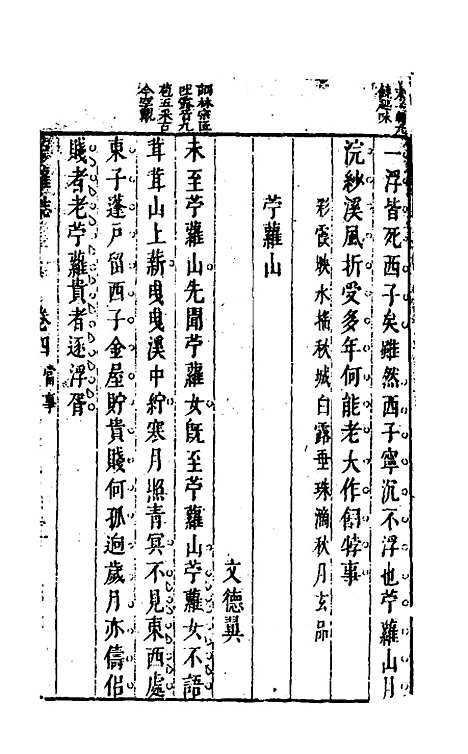 一浮皆死西子矣雖然西子寧沉不浮也苧蘿山月
浣紗溪風折受多年何能老大作個特事
彩霞映水橋秋城白露垂珠滴秋月玄品
苧蘿山
文德翼
未至苧蘿山先聞苧蘿女旣至苧蘿山苧蘿女不語
茸茸山上薪曳曳溪中紵寒月照青冥不見東西處
東子蓬戶留西子金屋貯貴賤何孤迥歲月亦儔侶
賤者老苧蘿貴者逐浮胥
蘿誌
卷四